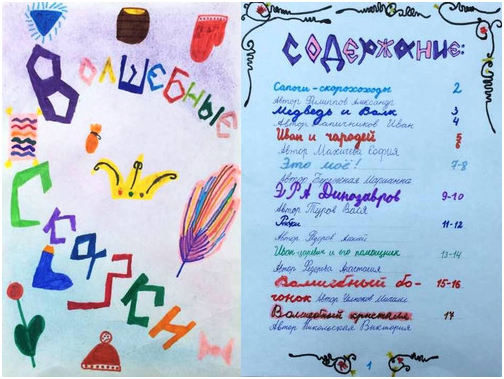 Волшебные
Сказки
СОДЕРЖАНИЕ:
Сапоги-скороходы 2
Автор Филиппов Александр
Медведь и Волк 3
Автор Иван 4
Иван и чародей 5
Автор София 6
Это моё! 7-8
Автор Марианна
ЭРА Динозавров 9-10
Автор Туров Вася
11-12
Автор
Иван-царевич и его помощник 13-14
Автор Федорова Анастасия
Волшебный бо-
чонок Автор 15-16
Волшебный кристалл 17
Автор Никольская Виктория
1